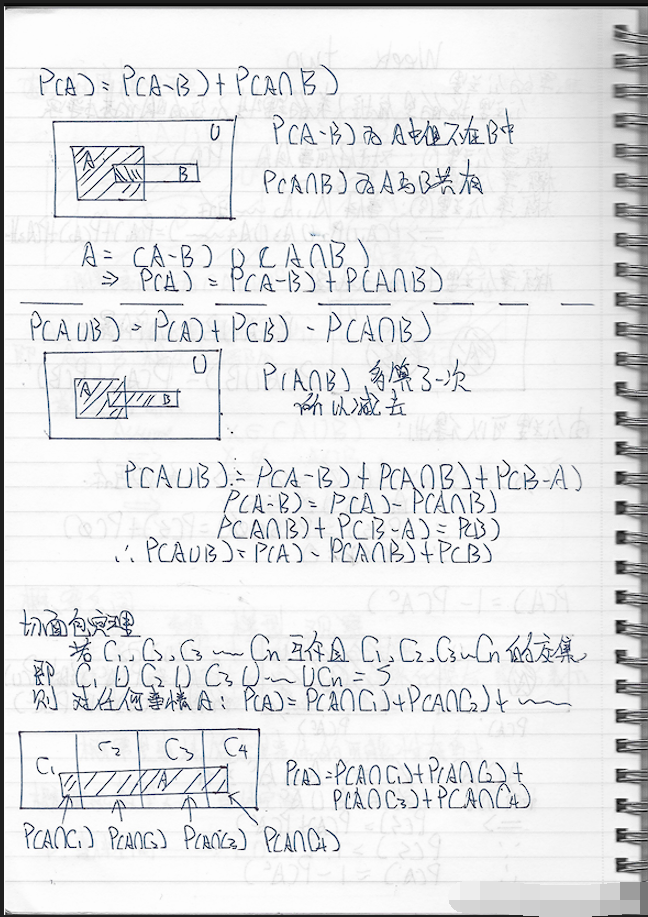 P(A) = P(A-B) + P(A∩B)
U
A
B
P(A-B) 为 A中但不在B中
P(A∩B) 为 A与B共有
A = (A-B) ∪ (A∩B)
⇒ P(A) = P(A-B) + P(A∩B)
P(A∪B) = P(A) + P(B) - P(A∩B)
U
A
B
P(A∩B) 多算了一次
所以减去
P(A∪B) = P(A-B) + P(A∩B) + P(B-A)
P(A-B) = P(A) - P(A∩B)
P(A∩B) + P(B-A) = P(B)
∴ P(A∪B) = P(A) - P(A∩B) + P(B)
切面包定理
若 C₁, C₂, C₃ ~~ Cn 互斥且 C₁, C₂, C₃~Cn 的
即 C₁ ∪ C₂ ∪ C₃ ∪ ~~ ∪ Cn = S
则 对任何事情A: P(A) = P(A∩C₁) + P(A∩C₂) + ~~
C₁ C₂ C₃ C₄
A
P(A) = P(A∩C₁) + P(A∩C₂) +
P(A∩C₃) + P(A∩C₄)
P(A∩C₁) P(A∩C₂) P(A∩C₃) P(A∩C₄)